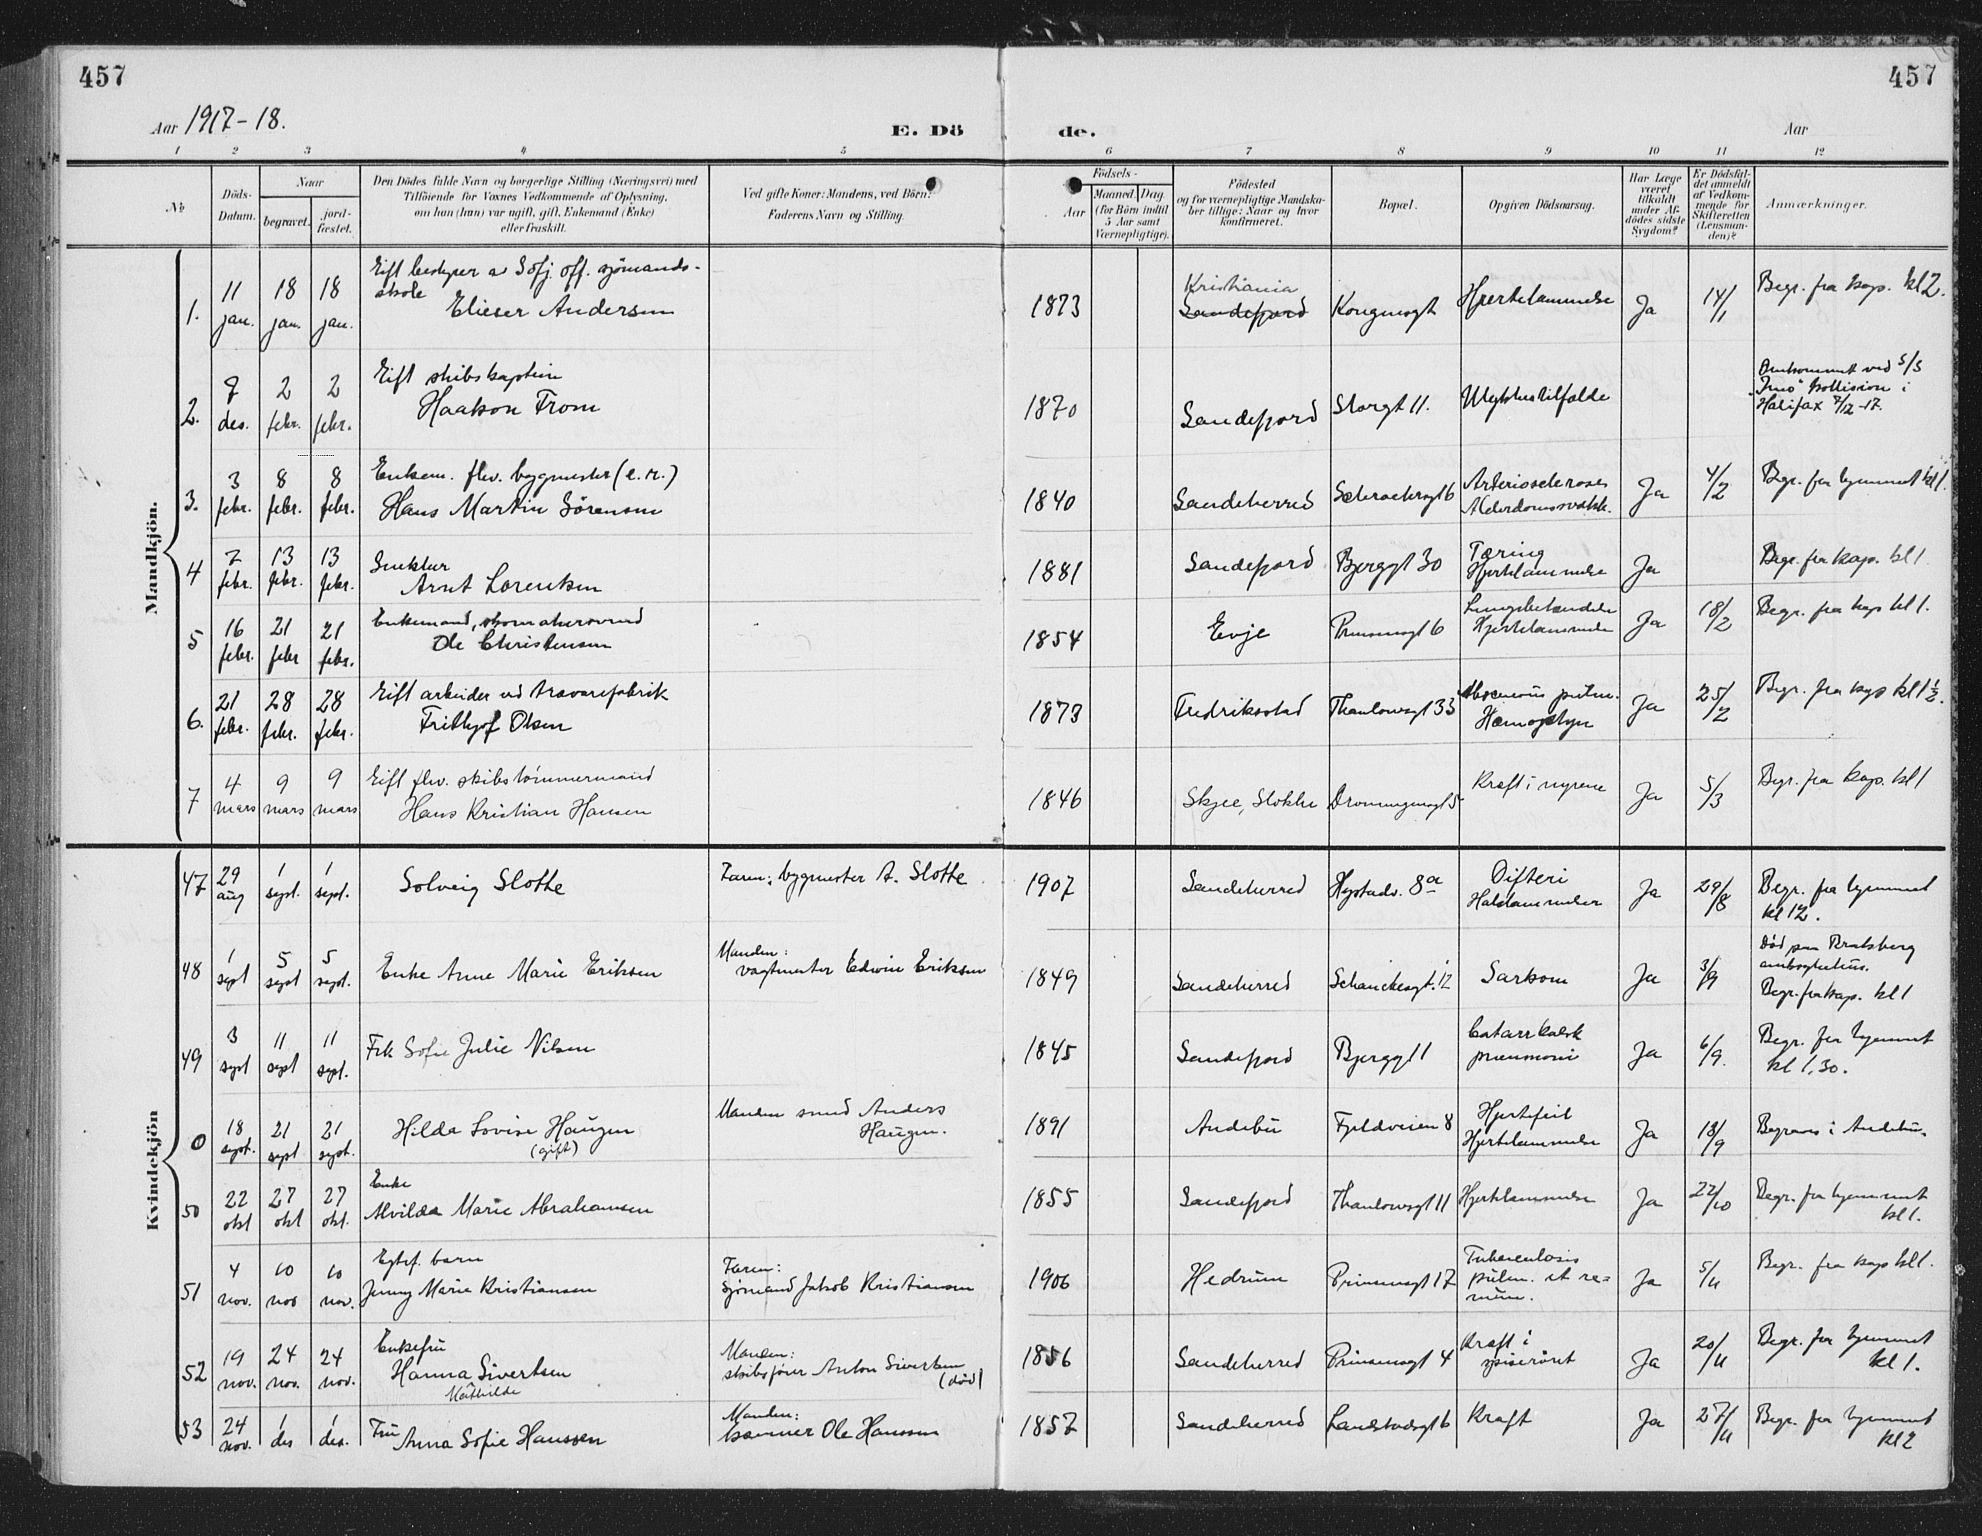 457
457
Aar 1917-18.
E. Dö
de.
Aar
1 2 3 4 5 6 7 8 9 10 11 12
№
Döds-Datum.
Naar
begravet.
jord-fæstet.
Den Dödes fulde Navn og borgerlige Stilling (Næringsvei) med
Tilföiende for Voxnes Vedkommende af Oplysning,
om han (hun) var ugift, gift, Enkemand (Enke)
eller fraskilt.
Ved gifte Koner: Mandens, ved Börn:
Faderens Navn og Stilling.
Födsels-
Aar
Maaned.
Dag.
(for Börn indtil
5 Aar samt
Værnepligtige).
Födested
og for værnepligtige Mandska-
ber tillige: Naar og hvor
konfirmeret.
Bopæl.
Opgiven Dödsaarsag.
Har Læge
været
tilkaldt
under Af-
dödes sidste
Sygdom?
Er Dödsfal-
det anmeldt
af Vedkom-
mende for
Skifteretten
(Lensman-
den)?
Anmærkninger.
Mandkjön.
1. 11 jan. 18 jan. 18 jan. Gift bestyrer av Sefj. off. sjömands-
skole
Elieser Andersen 1873 Kristiania
Sandefjord Kongensgt Hjertelammelse Ja 14/1 Begr. fra kap. kl 2.
2. 7 des. 2 febr. 2 febr. Gift skibskaptein
Haakon From 1870 Sandefjord Storgt 11. Ulykkestilfælde Omkommet ved S/S
"Imo" kollision i
Halifax 7/12-17.
3. 3 febr. 8 febr. 8 febr. Enkem. flv. bygmester (e.r.)
Hans Martin Sörensen 1840 Sandeherred 6 Arteriosclerose
Alderdomssvækk. Ja 4/2 Begr. fra hjemmet kl 1.
4 7 febr. 13 febr. 13 febr. Snekker
Arnt Lorentsen 1881 Sandefjord Bjerggt 30 Tæring
Hjertelammelse Ja Begr. fra kap. kl 1
5 16 febr. 21 febr 21 febr. Enkemand, skomakersvend
Ole Christensen 1854 Evje Prinsensgt 6 Lungebetændelse
Hjertelammelse Ja 18/2 Begr. fra kap kl 1.
6. 21 febr. 28 febr. 28 febr. Gift arbeider ved travarefabrik
Frithjof Olsen 1873 Fredriksstad Thaulowsgt 33 pulm.
Hæmoptyse Ja 25/2 Begr. fra kap kl 1½.
7 4 mars 9 mars 9 mars Gift flv. skibstömmermand
Hans Kristian Hansen 1846 Skjee, Stokke Dronningensgt 5 Kræft i nyrene Ja 5/3 Begr. fra kap. kl 1
Kvindekjön
47 29 aug 1 sept. 1 sept. Solveig Slotte Faren: bygmester A. Slotte 1907 Sandeherred Hystadv. 8a Difteri
Halslammelser Ja 29/8 Begr. fra hjemmet
kl 12.
48 1 sept 5 sept 5 sept. Enke Anne Marie Eriksen Manden:
vagtmester Edwin Eriksen 1849 Sandeherred Schanchesgt. 12 Sarkom Ja 3/9 Död paa Bratsberg
amtssykehus.
Begr. fra kap. kl 1
49 3 sept 11 sept 11 sept. Frk Sofie Julie Nilsen 1845 Sandefjord Bjerggt 1 Catarrhalsk
pneumoni Ja 6/9. Begr. fra hjemmet
kl 1.30.
0 18 sept. 21 sept 21 sept. Hilda Lovise Haugen
(gift) Manden smed Anders
Haugen. 1891 Andebu Fjeldveien 8 Hjertefeil
Hjertelammelse Ja 18/9 Begraves i Andebu.
50 22 okt 27 okt 27 okt. Enke
Alvilda Marie Abrahamsen 1855 Sandefjord Thaulowsgt 11 Hjertelammelse Ja 22/10 Begr. fra hjemmet
kl 1.
51 4 nov. 10 nov 10 nov. Egtef. barn
Jenny Marie Kristiansen Faren:
Sjömand Jakob Kristiansen 1906 Hedrum Prinsensgt 17 Tuberculosis
pulm. et re-
num. Ja 5/11 Begr. fra kap kl 1.
52 19 nov. 24 nov. 24 nov. Enkefru
Hanna Sivertsen
Mathilde Manden:
skibsförer Anton Sivertsen
(död) 1856 Sandeherred Prinsensgt 4 Kræft i
spiserörit Ja 20/11 Begr. fra hjemmet
kl 1.
53 24 nov. 1 des 1 des. Fru
Anna Sofie Hanssen Manden:
Ole Hanssen 1857 Sandeherred Landstadsgt 6 Kræft Ja 27/11 Begr. fra hjemmet
kl 2